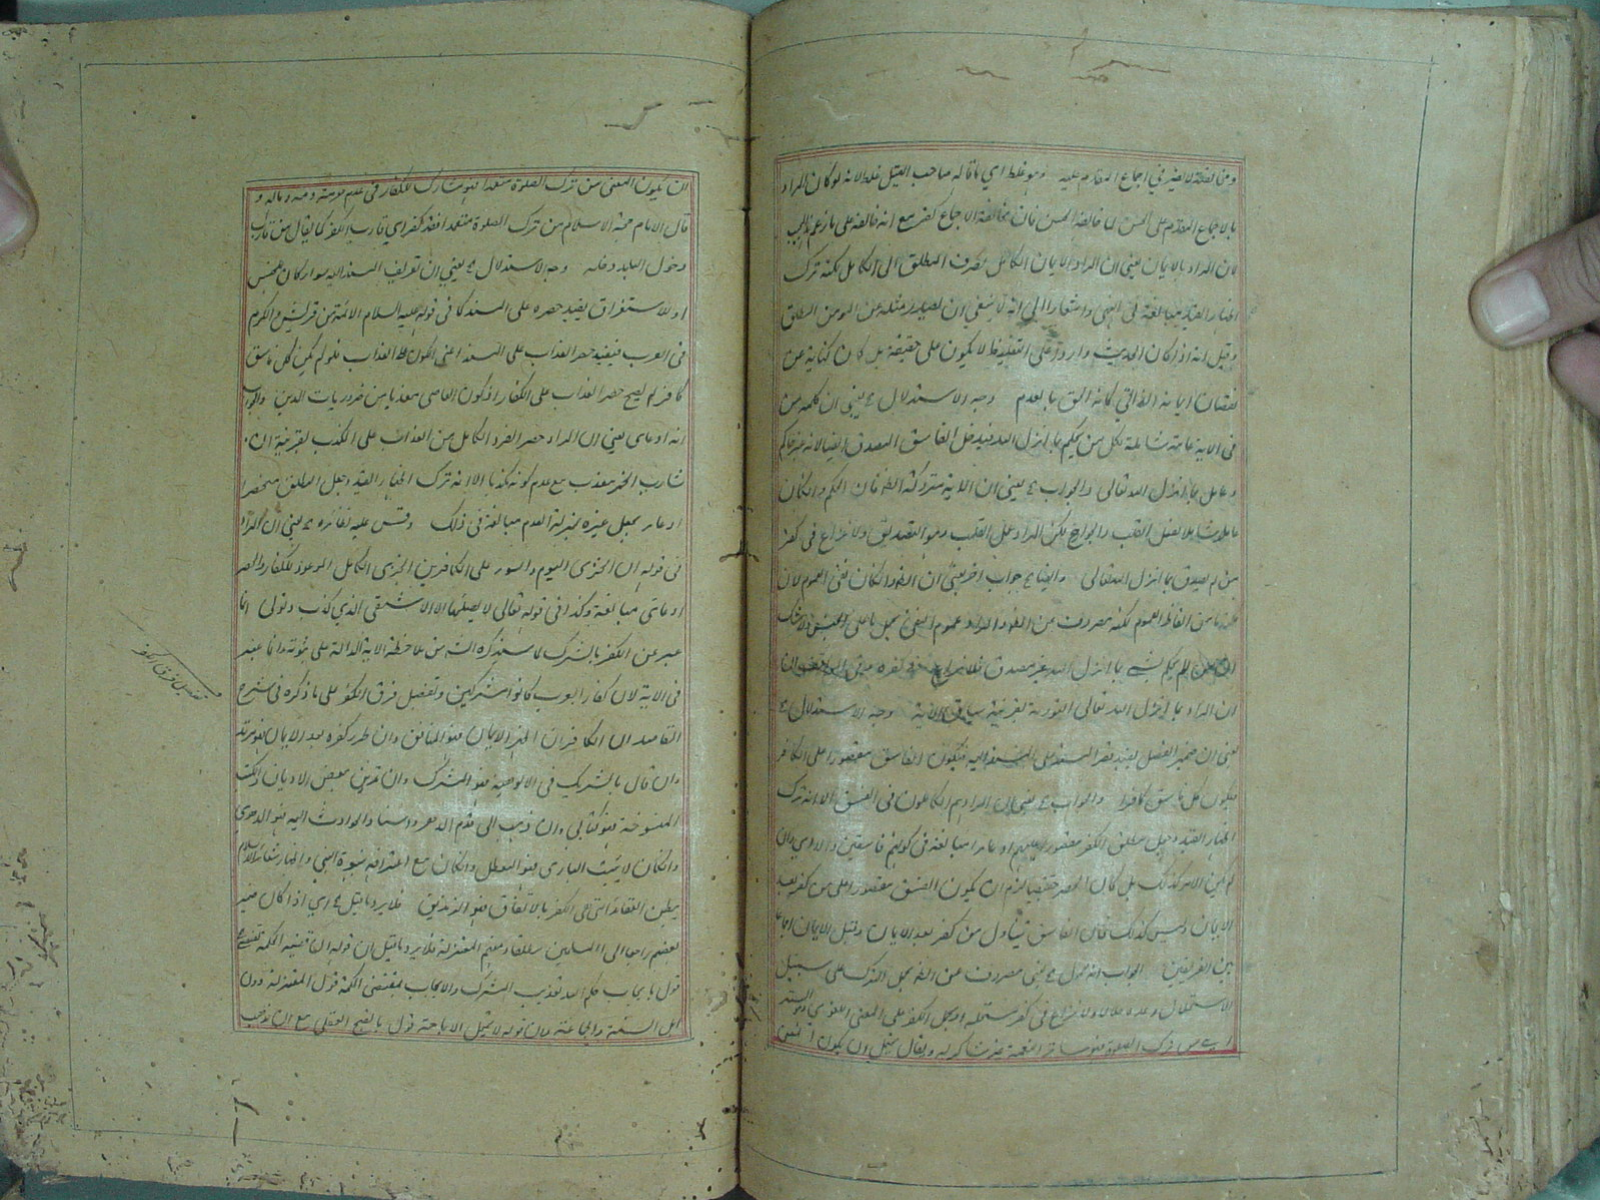 ومن لفظة لا يضر في اجماع المقدم عليه وهو غلط اي ما قاله صاحب القيل غلط لانه لو كان المراد
بالاجماع المقدم على الحسن لما خالفه الحسن فان مخالفة الاجماع كفر مع انه خالفه على ما زعم المجيب
لان المراد بالايمان يعني ان المراد الايمان الكامل بصرف المطلق الى الكامل لكنه ترك
اظهار القيد مبالغة في النهي واشعارا الى انه لا ينبغي ان يصدر مثله عن المومن المطلق
وقيل انه اذا كان الحديث واردا على التغليظ لا يكون على حقيقة بل كان كناية عن
نقصان ايمانه الذاتي كانه الحق بالعدم وجه الاستدلال ع يعني ان كلمة من
في الاية عامة شاملة لكل من يحكم بما انزل الله فيدخل الفاسق المصدق ايضا لانه غير حاكم
وعامل بما انزل الله تعالى والجواب ع يعني ان الاية متروكة الظاهر فان الحكم وان كان
عاما شاملا لفعل القلب والجوارح لكن المراد عمل القلب وهو التصديق ولا نزاع في كفر
من لم يصدق بما انزل الله تعالى وايضا ع جواب اخر يعني ان
كلمة ما من الفاظ العموم لكنه مصروف عن الظاهر والمراد عموم النفي بحمل ما على الجنس ولا شك
ان من لم يحكم بشيء مما انزل الله غير مصدق فلا نزاع في كفره
ان المراد بما انزل الله تعالى التورية بقرينة سياق الاية وجه الاستدلال ع
يعني ان ضمير الفصل يفيد قصر المسند على المسند اليه فيكون الفاسق مقصورا على الكافر
فيكون كل فاسق كافرا والجواب ع يعني ان المراد هم الكاملون في الفسق الا انه ترك
اظهار القيد وجعل مطلق الكفر مقصورا عليهم ادعاء مبالغة في كونهم فاسقين والا اي وان
لم يكن الامر كذلك بل كان الحصر حقيقيا لزم ان يكون الفسق مقصورا على من كفر بعد
الايمان وليس كذلك فان الفاسق يتناول من كفر بعد الايمان وقبل الايمان اجماعا
بين الفريقين الجواب انه محمول ع يعني مصروف عن الظاهر بحمل الترك على سبيل
الاستحلال وعده حلالا ولا نزاع في كفر مستحله او بحمل الكفر على المعنى اللغوي وهو الستر
اي من ترك الصلوة فهو ساتر النعمة
لان يكون المعنى من ترك الصلوة متعمدا فهو مشارك للكفار في عدم حرمة دمه وماله و
قال الامام حجة الاسلام من ترك الصلوة متعمدا فقد كفر اي قارب الكفر كما يقال من قارب
دخول البلد دخله وجه الاستدلال ع يعني ان تعريف المسند اليه سوا كان للجنس
او للاستغراق يفيد حصره على المسند كما في قوله عليه السلام الائمة من قريش والكرم
في العرب فيفيد حصر العذاب على المسند اعني الكون على العذاب فلو لم يكن كل فاسق
كافرا لم يصح حصر العذاب على الكفار اذ كون العاصي معذبا من ضروريات الدين والجواب
انه ادعائي يعني ان المراد حصر الفرد الكامل من العذاب على المكذب بقرينة ان
شارب الخمر معذب مع عدم كونه مكذبا الا انه ترك اظهار القيد وجعل المطلق منحصرا
ادعاء بجعل غيره بمنزلة العدم مبالغة في ذلك وقس عليه نظائره ع يعني ان المراد
في قوله ان الخزي اليوم والسوء على الكافرين الخزي الكامل الموعود للكفار والحصر
ادعائي مبالغة وكذا في قوله تعالى لا يصليها الا الاشقى الذي كذب وتولى انما
عبر عن الكفر بالشرك لما سيذكره الش من ملاحظة الاية الدالة على ثبوته وانما عبر
في الاية لان كفار العرب كانوا مشركين وتفصيل فرق الكفر على ما ذكره في شرح
المقاصد ان الكافر ان اظهر الايمان فهو المنافق وان طرء كفره بعد الايمان فهو المرتد
وان قال بالشريك في الالوهية فهو المشرك وان تدين ببعض الاديان والكتب
المنسوخة فهو كتابي وان ذهب الى قدم الدهر واسناد الحوادث اليه فهو الدهري
وان كان لا يثبت الباري فهو المعطل وان كان مع اعترافه بنبوة النبي واظهار شعائر الاسلام
يبطن العقائد التي هي الكفر بالاتفاق فهو الزنديق فلا يرد ما قيل ع اي اذا كان ضمير
بعضهم راجعا الى المسلمين مطلقا ومنهم المعتزلة فلا يرد ما قيل ان قوله ان قضية الحكمة تقتضيه
قول بايجاب حكم الله تعذيب المشرك والايجاب بمقتضى الحكمة قول المعتزلة دون
اهل السنة والجماعة وان قوله لا يحتمل الاباحة قول بالقبح العقلي مع ان مذهب
تفصيل فرق الكفر